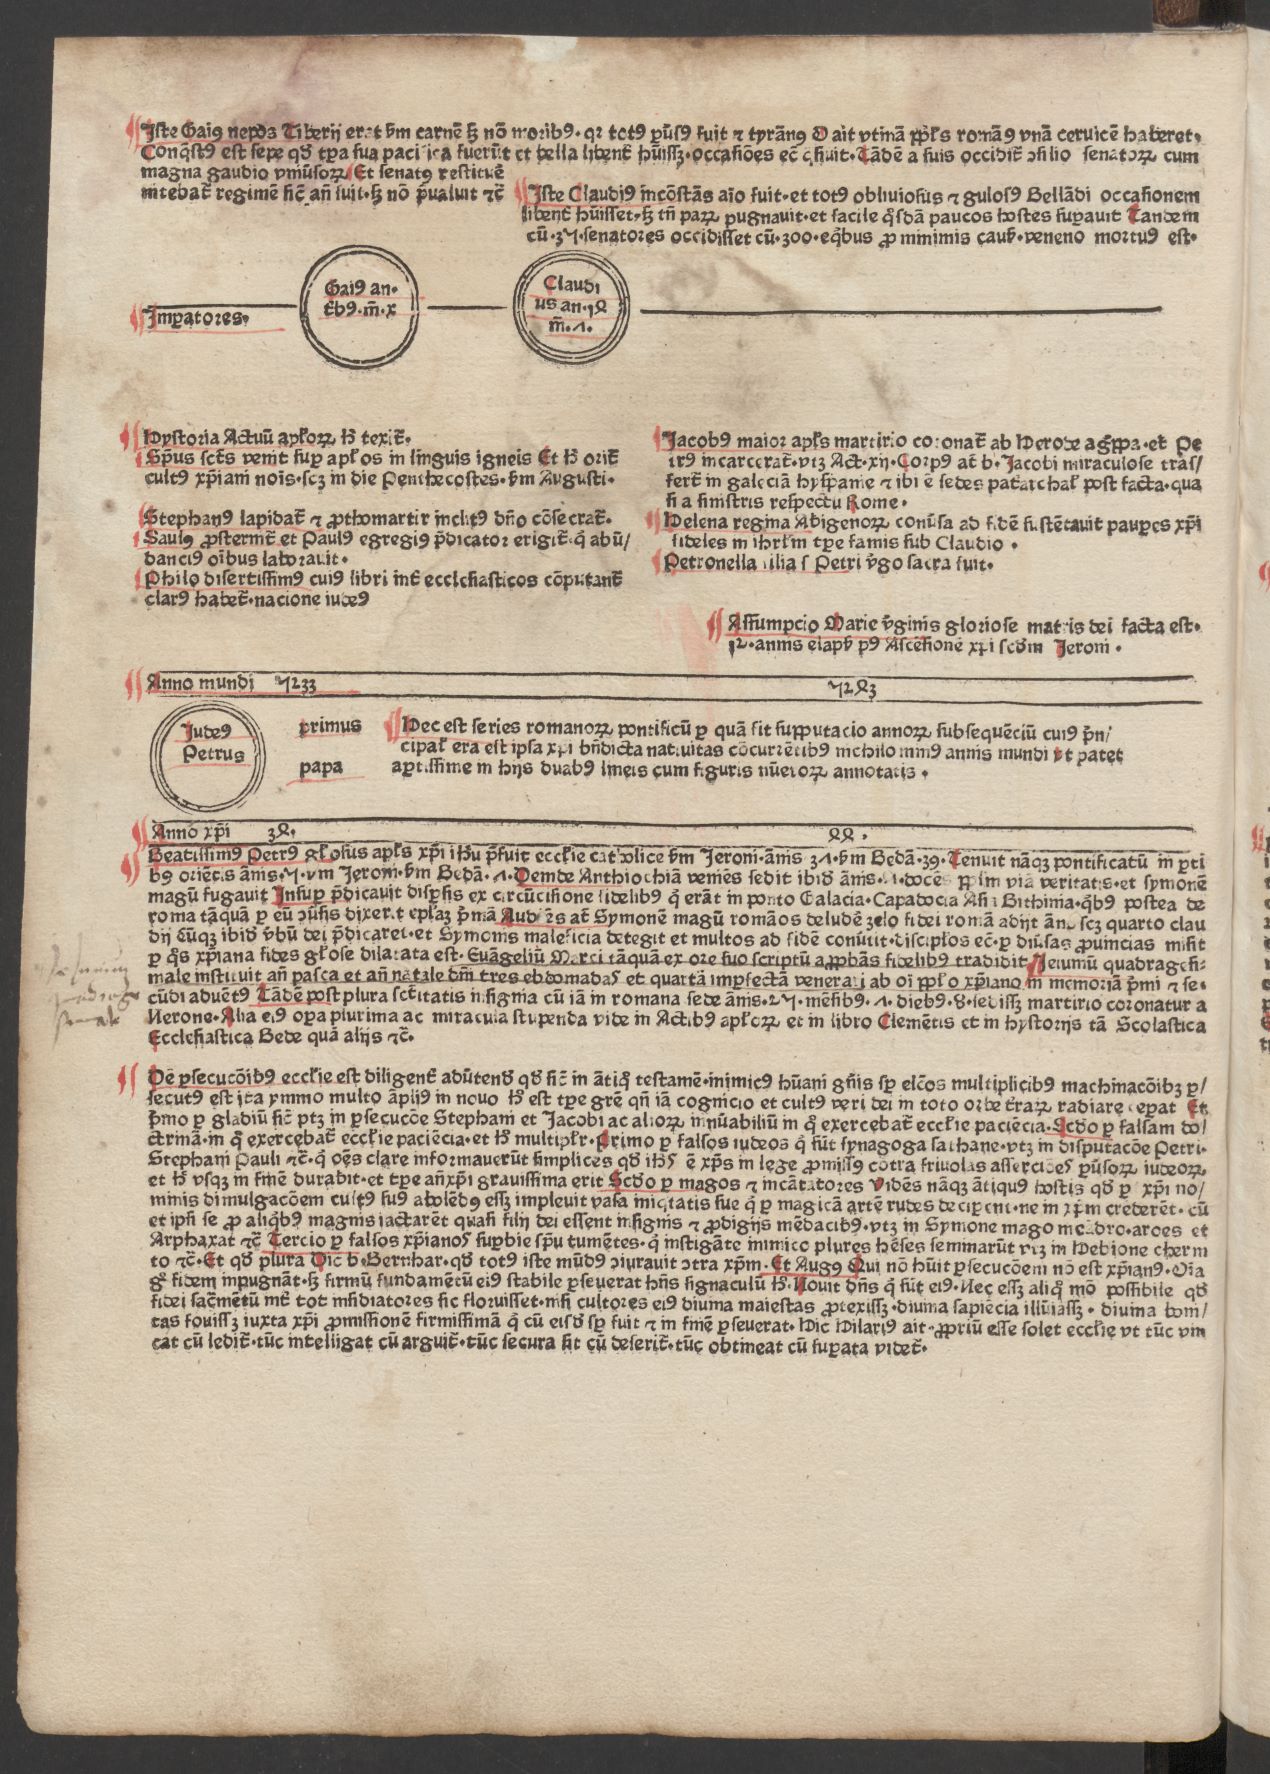 Iste Gaiꝰ nepōs Tiberij erat ẜm carnē ſꝫ nō moribꝰ· qꝛ totꝰ ꝑūſꝰ fuit ⁊ tyrānꝰ ait vtinā ppl̄s romāꝰ vnā ceruicē haberet·
Conq̄ſtꝰ est ſepe qd̄ tꝑa ſua pacifica fuerūt et bella libent̄ hūiſſꝫ· occaſiōes ec̄ q̄ſiuit· Tādē a ſuis occidit̄ ↄſilio ſenatoꝝ cum
magna gaudio vniūſoꝝ Et ſenatꝰ reſtituē
intebat̄ regimē ſic̄ an̄ fuit· ſꝫ nō p̄ualuit ⁊c̄
Iste Claudiꝰ incōſtās aīo fuit· et totꝰ obliuioſus ⁊ guloſꝰ Bellādi occaſionem
libent̄ hūiſſet· ſꝫ tn̄ paꝝ pugnauit· et facile q̄ſdā paucos hostes ſuꝑauit Tandem
cū· 37· ſenatores occidiſſet cū· 300· eq̄bus ꝓ minimis cauẜ· veneno mortuꝰ est·
Gaiꝰ an·
t̄bꝰ· m̄· x
Claudi
us an· 14
m̄· 7·
Imꝑatores·
Hystoria Actuū apl̄oꝝ h̄ texit̄·
Sp̄us sct̄s venit ſuꝑ apl̄os in linguis igneis Et h̄ orit̄
cultꝰ xp̄iani noīs· ſcꝫ in die Penthecostes· ẜm Auguſti·
Stephanꝰ lapidat̄ ⁊ ꝓthomartir inclitꝰ dn̄o cōſecrat̄·
Saulꝰ ꝓſternit̄ et Paulꝰ egregiꝰ p̄dicator erigit̄ q̄ abū/
danciꝰ oībus laborauit·
Philo diſertiſſimꝰ cuiꝰ libri int̄ eccleſiaſticos cōputant̄
clarꝰ habet̄· nacione iudeꝰ
Jacobꝰ maior apl̄s martirio coronat̄ ab Herode agrippa· et Pe
trꝰ incarcerat̄· vtꝫ Act· xij· Corpꝰ at̄ b· Jacobi miraculoſe trāſ/
fert̄ in galeciā hyſpanie ⁊ ibi ē ſedes patriarchal̄ post facta· qua
ſi a ſinistris reſpectu Rome·
Helena regina Abigenoꝝ conūſa ad fidē ſuſtētauit pauꝑes xp̄i
fideles in ihrl̄m tꝑe famis ſub Claudio·
Petronella filia ſ Petri v̄go ſacra fuit·
Aſſumpcio Marie v̄ginis glorioſe matris dei facta est·
12· annis elapẜ pꝰ Aſcēſionē xp̄i ſcd̄m Jeroni·
Anno mundi 5233
5243
Judeꝰ
Petrus
primus
papa
Hec est ſeries romanoꝝ pontificū ꝑ quā fit ſupputacio annoꝝ ſubſequēciū cuiꝰ p̄n/
cipal̄ era est ipſa xp̄i bn̄dicta natiuitas cōcurrētibꝰ nichilominꝰ annis mundi vt patet
aꝑtiſſime in hijs duabꝰ lineis cum figuris nūeroꝝ annotatis·
Anno xp̄i 34·
44·
Beatiſſimꝰ Petrꝰ gl̄oſus apl̄s xp̄i ih̄u p̄fuit eccl̄ie catholice ẜm Jeroni· ānis 37· ẜm Bedā· 39· Tenuit nāqꝫ pontificatū in ꝑti
bꝰ oriētis ānis· 5· ẜm Jeroni· ẜm Bedā· 7· Deinde Anthiochiā veniēs ſedit ibidē ānis· 7· docēs ppl̄m viā veritatis· et ſymonē
magū fugauit Inſuꝑ p̄dicauit diſꝑſis ex circūciſione fidelibꝰ q̄ erāt in ponto Galacia· Capadocia Aſia Bithinia· q̄bꝰ postea de
roma tāquā ꝑ eū ↄūſis dixerat epl̄aꝫ p̄mā Audiēs at̄ Symonē magū romāos deludē zelo fidei romā adijt āno ſcꝫ quarto clau
dij Cūqꝫ ibidē v̄bū dei p̄dicaret· et Symonis maleficia detegit et multos ad fidē conūtit· diſcipl̄os ec̄· ꝑ diūſas ꝓuincias miſit
ꝑ q̄s xp̄iana fides gl̄oſe dilatata est· Euāgeliū Marci tāquā ex ore ſuo ſcriptū approbās fidelibꝰ tradidit Jeiuniū quadrageſi-
male inſtituit an̄ paſca et an̄ natale dn̄i tres ebdomadas et quartā imꝑfectā venerari ab oī ppl̄o xp̄iano in memoriā p̄mi ⁊ ſe-
cūdi aduētꝰ Tādē post plura ſct̄itatis inſignia cū iā in romana ſede ānis· 25· mēſibꝰ· 7· diebꝰ· 8· ſediſſꝫ martirio coronatur a
Nerone· Alia eiꝰ oꝑa plurima ac miracula ſtupenda vide in Actibꝰ apl̄oꝝ et in libro Clemētis et in hyſtorijs tā Scolaſtica
Eccleſiaſtica Bede quā alijs ⁊c̄·
De ꝑſecucōibꝰ eccl̄ie est diligent̄ aduertend̄ qd̄ ſic̄ in ātiqͦ testamē· inimicꝰ hūani gn̄is ſꝑ elc̄os multiplicibꝰ machinacōibꝫ ꝑ/
ſecutꝰ est ita ymmo multo āpliꝰ in nouo h̄ est tꝑe gr̄e qn̄ iā cognicio et cultꝰ veri dei in toto orbe t̄raꝝ radiare ceꝑat Et
p̄mo ꝑ gladiū ſic̄ ptꝫ in ꝑſecucōe Stephani et Jacobi ac alioꝝ innūabiliū in q̄ exercebat̄ eccl̄ie paciēcia· Scd̄o ꝑ falſam do/
ctrinā· in q̄ exercebat̄ eccl̄ie paciēcia· et h̄ multipl̄r· Primo ꝑ falſos iudeos q̄ ſūt ſynagoga ſathane· vtꝫ in diſputacōe Petri·
Stephani Pauli ⁊c̄· q̄ oēs clare informauerūt ſimplices qd̄ ih̄s ē xp̄s in lege ꝓmiſſꝰ cōtra friuolas aſſerciōes ꝑūſoꝝ iudeoꝝ
et h̄ vſqꝫ in finē durabit· et tꝑe an̄xp̄i grauiſſima erit Scd̄o ꝑ magos ⁊ incātatores Vidēs nāqꝫ ātiquꝰ hostis qd̄ ꝑ xp̄i no/
minis diuulgacōem cultꝰ ſuꝰ abolēdꝰ eſſꝫ impleuit vaſa iniqͥtatis ſue q̄ ꝑ magicā artē rudes deciꝑent· ne in xp̄m crederēt· cū
et ipſi ſe ꝓ aliqͥbꝰ magnis iactarēt quaſi filij dei eſſent inſignis ⁊ ꝓdigijs mēdacibꝰ· vtꝫ in Symone mago meādro· aroes et
Arphaxat ⁊c̄ Tercio ꝑ falſos xp̄ianos ſuꝑbie ſp̄u tumētes· q̄ inſtigāte inimico plures hēſes ſeminarūt vtꝫ in Hebione cherin
to ⁊c̄· Et qd̄ plura Dic̄ b· Bernhar· qd̄ totꝰ iste mūdꝰ ↄiurauit ↄtra xp̄m· Et Augꝰ Qui nō hūit ꝑſecucōem nō est xp̄ianꝰ· Oīa
gͦ fidem inpugnāt· ſꝫ firmū fundamētū eiꝰ stabile ꝑſeuerat hn̄s ſignaculū h̄· Nouit dn̄s q̄ ſūt eiꝰ· Nec eſſꝫ aliqͦ mō poſſibile qd̄
fidei ſac̄mētū int̄ tot inſidiatores ſic floruiſſet· niſi cultores eiꝰ diuina maiestas ꝓtexiſſꝫ· diuina ſapiēcia illūiaſſꝫ· diuina boni/
tas fouiſſꝫ iuxta xp̄i ꝓmiſſionē firmiſſimā q̄ cū eiſdē ſꝑ fuit ⁊ in finē ꝑſeuerat· Hic Hilariꝰ ait· ꝓpriū eſſe ſolet eccl̄ie vt tūc vin
cat cū ledit̄· tūc intelligat cū arguit̄· tūc ſecura ſit cū deſerit̄· tūc obtineat cū ſuꝑata videt̄·